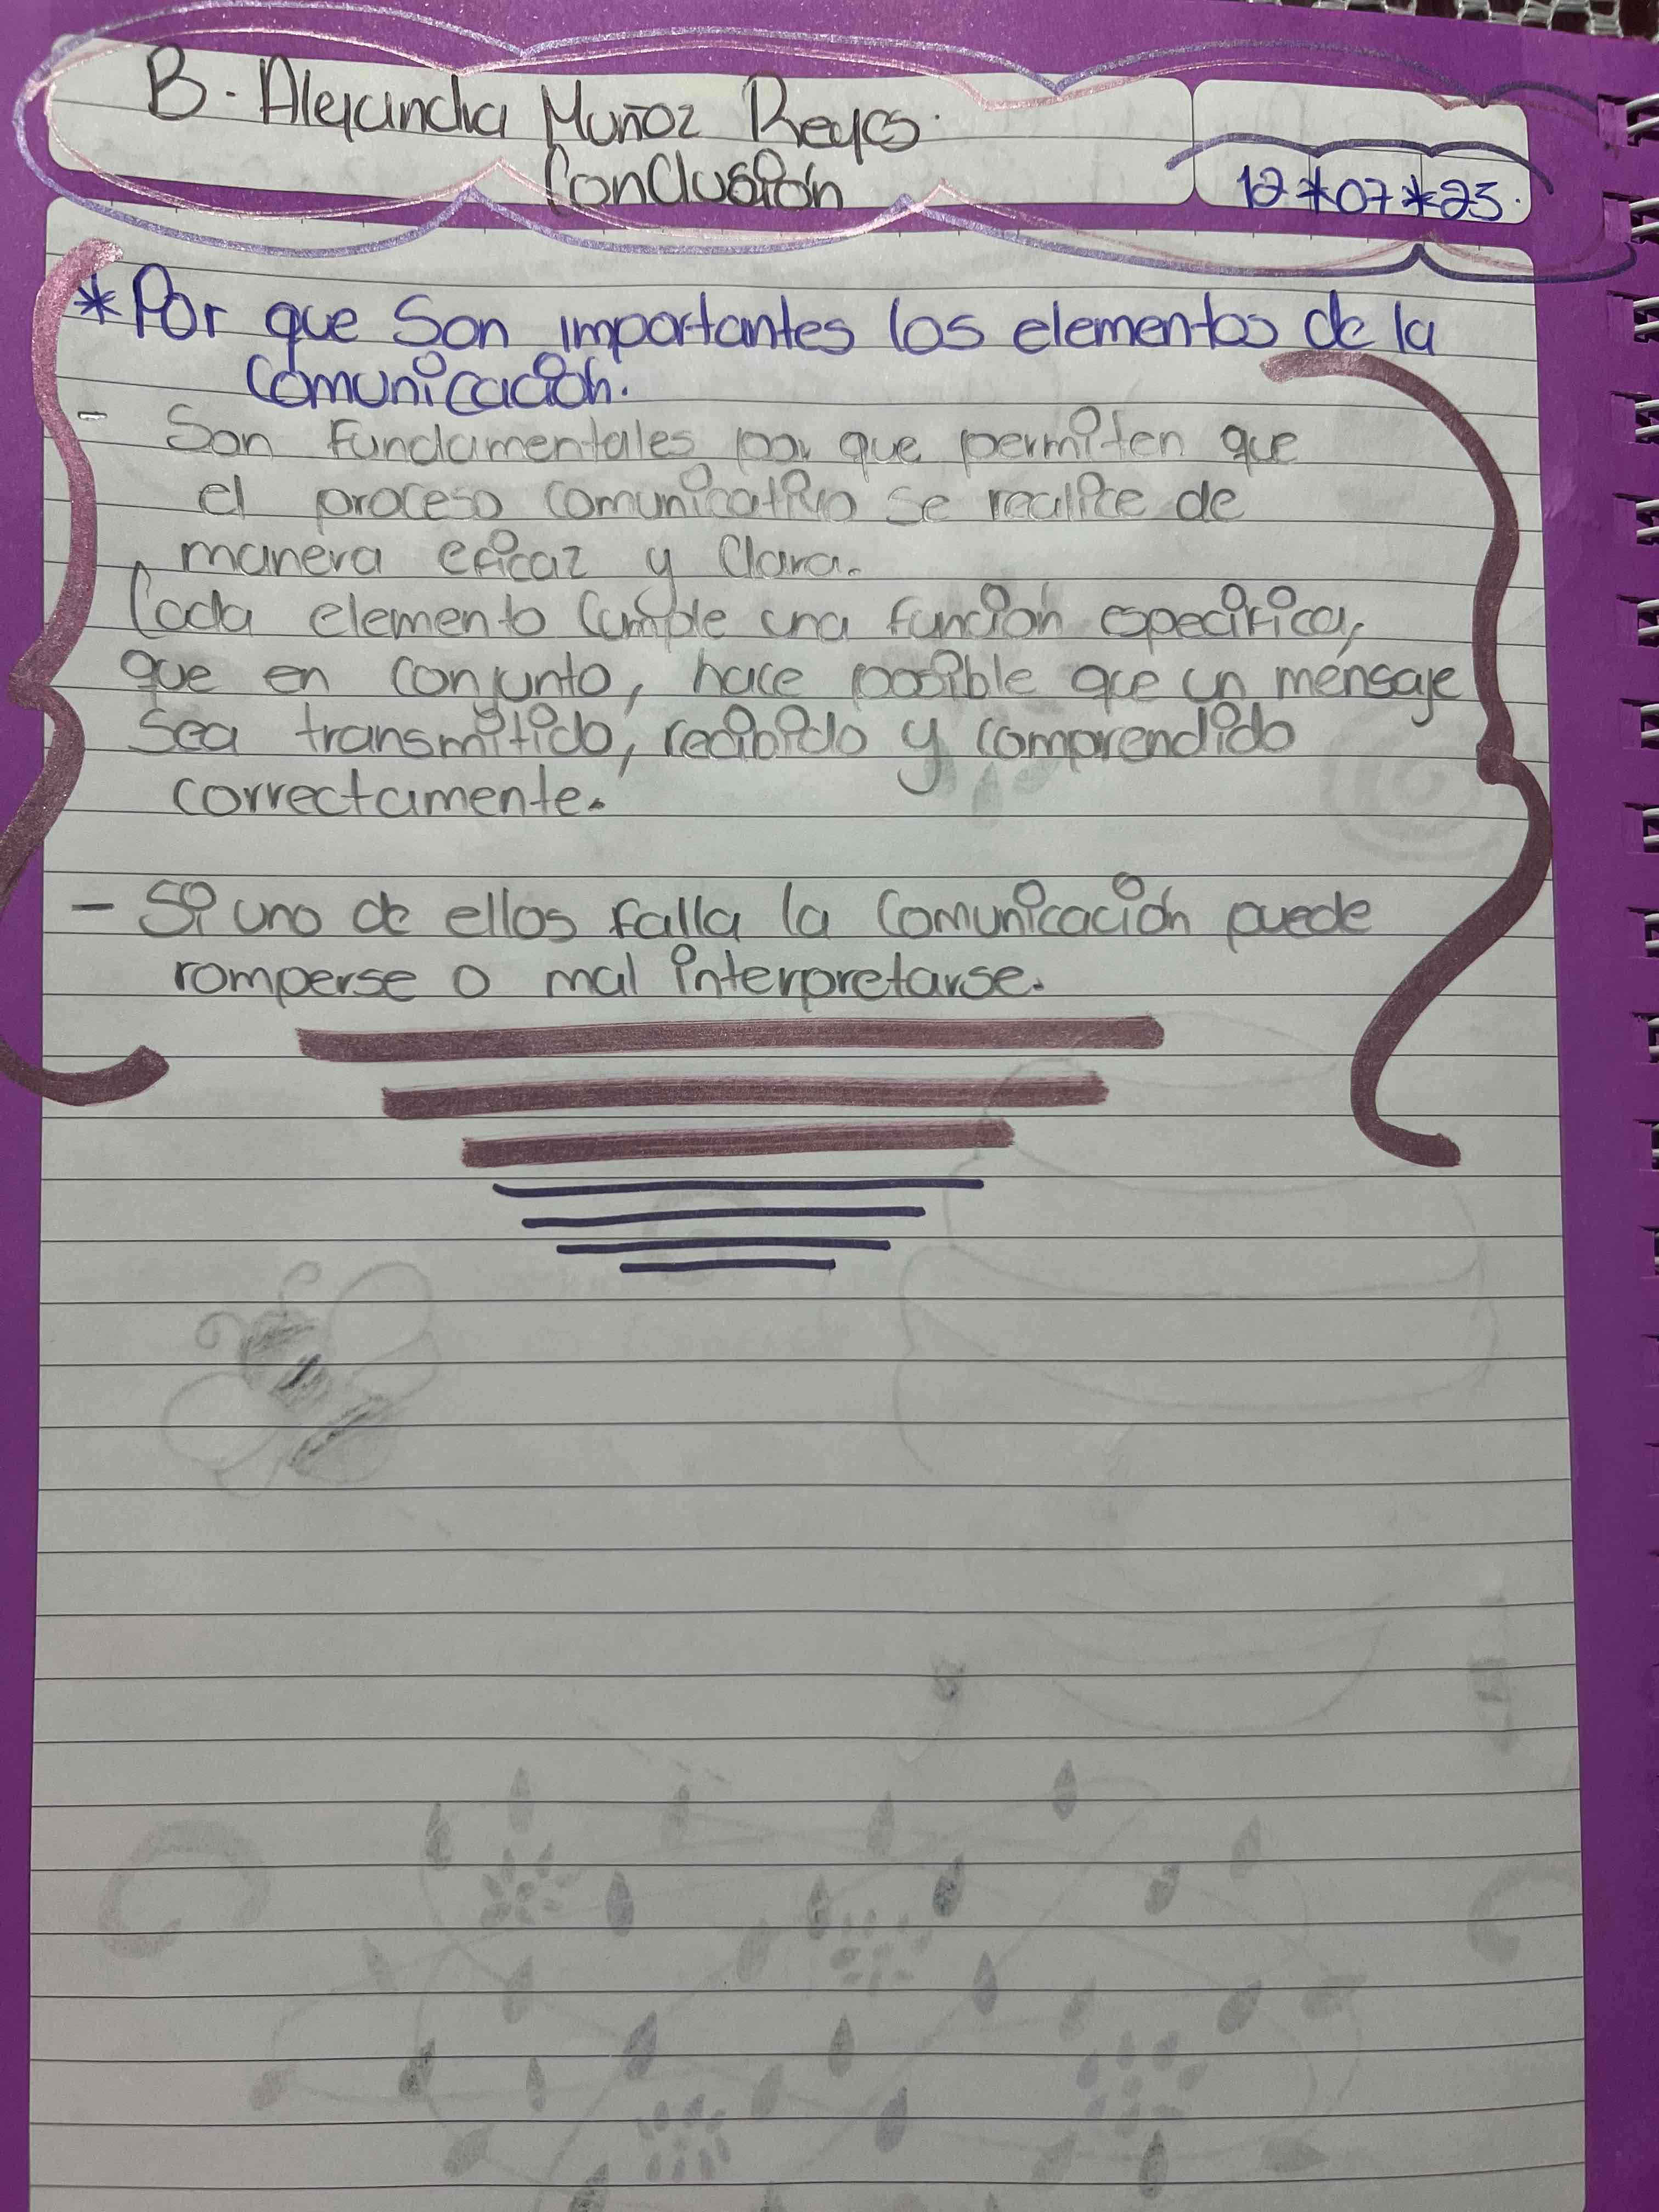 B. Alejandra Muñoz Reyes.
Conclusión
12*07*25.
*Por que son importantes los elementos de la
comunicación.
- Son fundamentales por que permiten que
el proceso comunicativo se realice de
manera eficaz y clara.
Cada elemento cumple una función especifica,
que en conjunto, hace posible que un ménsaje
sea transmitido, recibido y comprendido
correctamente.
- Si uno de ellos falla la comunicación puede
romperse o mal interpretarse.